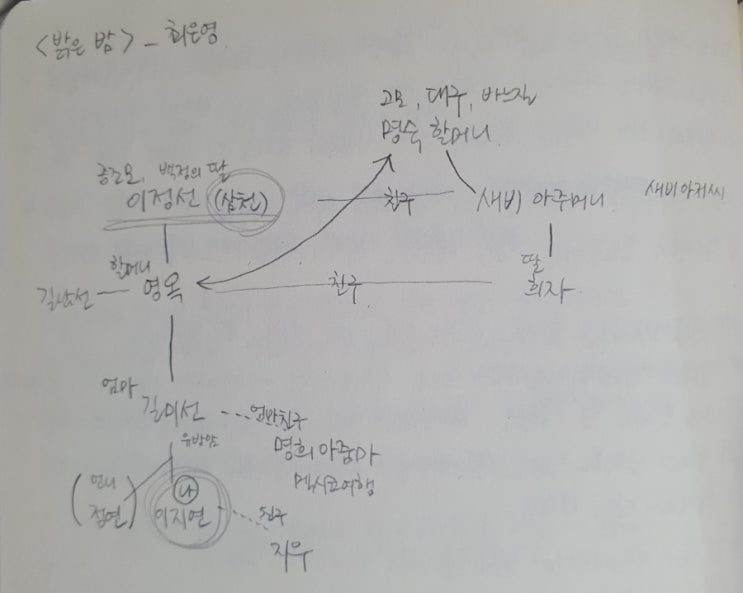 <밝은 밤> - 최은영
고모, 대구, 바느질
명숙 할머니
증조모, 백정의 딸
이정선 (삼천)
친구
새비 아주머니
새비아저씨
할머니
길남선
영옥
친구
딸
희자
엄마
길미선
엄마친구
유방암
명희아줌마
멕시코여행
언니
(정연)
나
이지연
친구
지우